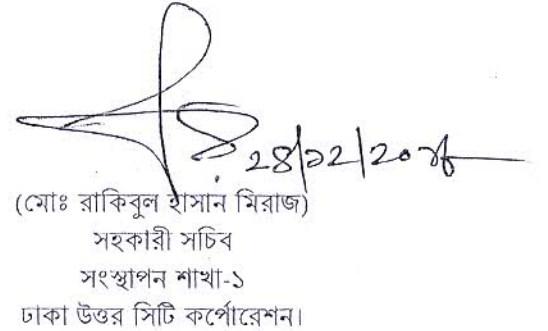 ২৪/১২/২০১৮
(মোঃ রাকিবুল হাসান মিরাজ)
সহকারী সচিব
সংস্থাপন শাখা-১
ঢাকা উত্তর সিটি কর্পোরেশন।